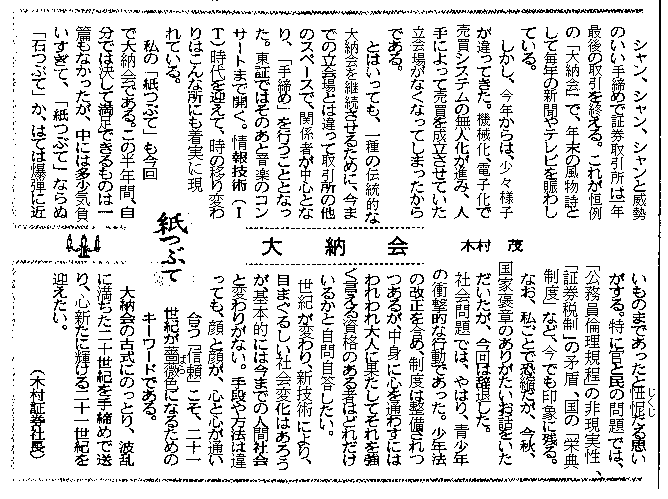 大納会
木村　茂
紙つぶて
シャン、シャン、シャンと威勢
のいい手締めで証券取引所は一年
最後の取引を終える。これが恒例
の「大納会」で、年末の風物詩と
して毎年の新聞やテレビを賑わし
ている。
しかし、今年からは、少々様子
が違ってきた。機械化、電子化で
売買システムの無人化が進み、人
手によって売買を成立させていた
立会場がなくなってしまったから
である。
とはいっても、一種の伝統的な
大納会を継続させるために、今ま
での立会場とは違って取引所の他
のスペースで、関係者が中心とな
り、「手締め」を行うこととなっ
た。東証ではそのあと音楽のコン
サートまで開く。情報技術（Ｉ
Ｔ）時代を迎えて、時の移り変わ
りはこんな所にも着実に現
れている。
私の「紙つぶて」も今回
で大納会である。この半年間、自
分では決して満足できるものは一
篇もなかったが、中には多少気負
いすぎて、「紙つぶて」ならぬ
「石つぶて」か、はては爆弾に近
いものまであったと忸怩たる思い
じくじ
がする。特に官と民の問題では、
「公務員倫理規程」の非現実性、
「証券税制」の矛盾、国の「栄典
制度」など、今でも印象に残る。
なお、私ごとで恐縮だが、今秋、
国家褒章のありがたいお話をいた
だいたが、今回は辞退した。
社会問題では、やはり、青少年
の衝撃的な行動であった。少年法
の改正を含め、制度は整備されつ
つあるが、中身に心を通わすには
われわれ大人に果たしてそれを強
く言える資格のある者はどれだけ
いるかと自問自答したい。
世紀が変わり、新技術により、
目まぐるしい社会変化はあろう
が基本的には今までの人間社会
と変わりがない。手段や方法は違
っても、顔と顔が、心と心が通い
合う「信頼」こそ、二十一
世紀が薔薇色になるための
ばら
キーワードである。
大納会の古式にのっとり、波乱
に満ちた二十世紀を手締めで送
り、心新たに輝ける二十一世紀を
迎えたい。
（木村証券社長）